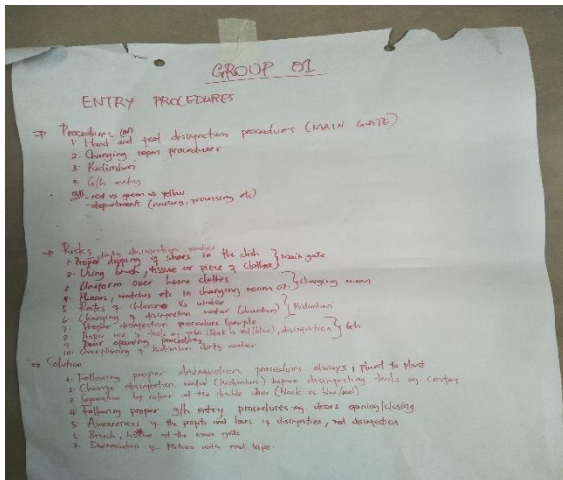 GROUP 01
ENTRY PROCEDURES
→ Procedures on
1. Hand and feet disinfection procedures (MAIN GATE)
2. Changing room procedures
3. Kadimban
4. G/h entry
- red vs green vs yellow
- department (nursing, processing etc)
→ Risks dirty disinfection water
1. Proper dipping of shoes in the dish } main gate
2. Using brush, tissue or piece of clothes
3. Uniform over home clothes } changing room
4. Phones, watches etc in changing room
5. Rates of chlorine vs water
6. Changing of disinfection water (duration) } Kadimban
7. Proper disinfection procedure (people
8. Proper use of tools or (black vs red/blue), disinfection } G/h
9. Door opening procedure
10. Overflowing of kadimban dirty water
→ Solution
1. Following proper disinfection procedures always, plant to plant
2. Change disinfection water (kadimban) before disinfecting tools eg. crates
3. Separation by colour at the double door (black vs blue/red)
4. Following proper g/h entry procedures eg. doors opening/closing
5. Awareness of the profits and loans of disinfection, not disinfection
6. Brush, tissue at the main gate
7. of Motives with red tape.